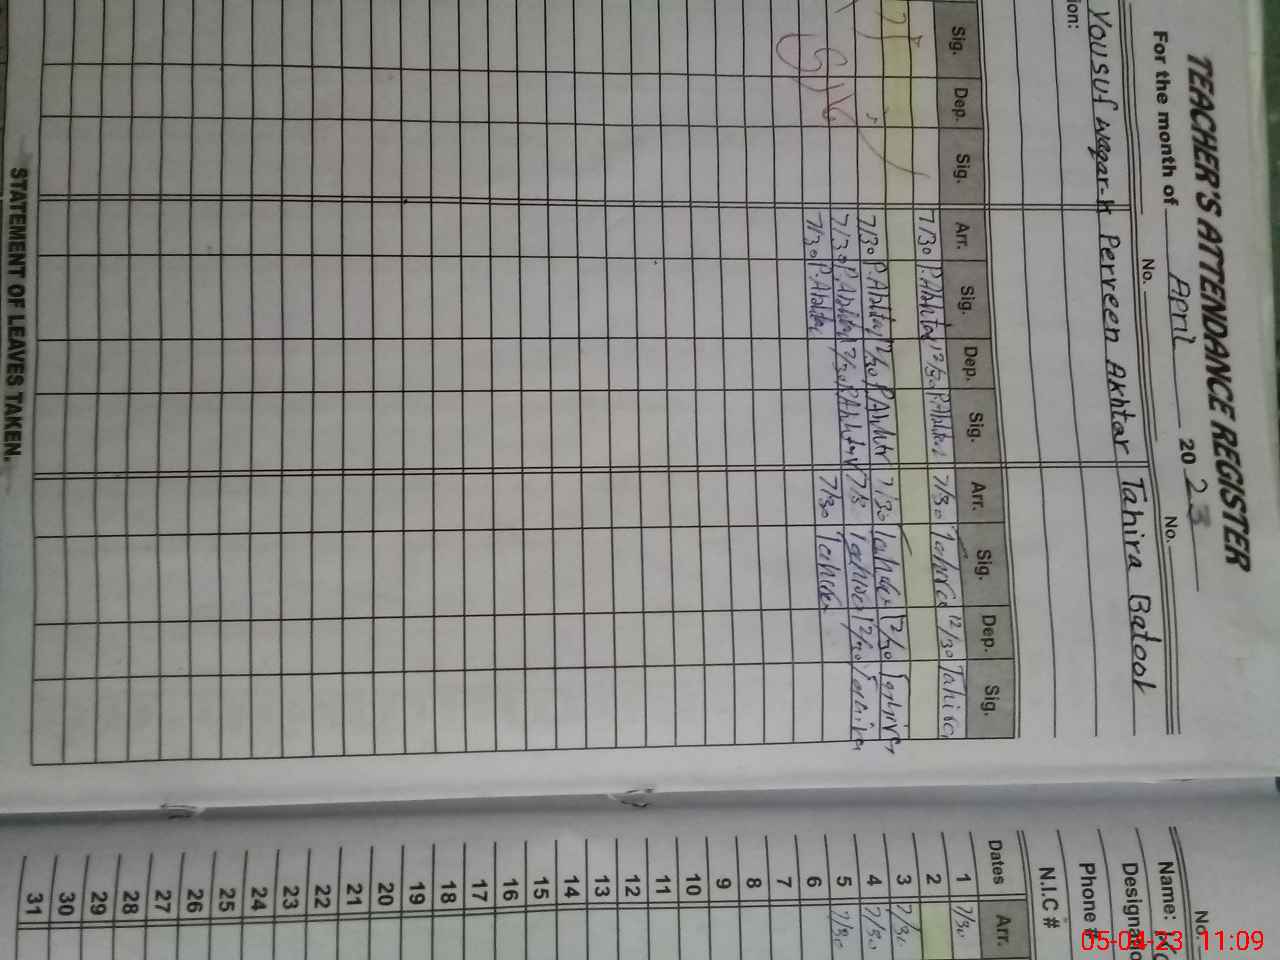 TEACHER'S ATTENDANCE REGISTER
For the month of April 2023
No. No.
Yousuf Waqar-H Perveen Akhtar Tahira Batool
ion:
Sig. Dep. Sig. Arr. Sig. Dep. Sig. Arr. Sig. Dep. Sig.
7/30 P.Akhtar 12/30 P.Akhtar 7/30 Tahira 12/30 Tahira
7/30 P.Akhtar 12/30 P.Akhtar 7/30 Tahira 12/30 Tahira
7/30 P.Akhtar 12/30 P.Akhtar 7/30 Tahira 12/30 Tahira
7/30 P.Akhtar 7/30 Tahira
STATEMENT OF LEAVES TAKEN.
No.
Name:
Designa
Phone #
N.I.C #
Dates Arr.
1 7/30
2
3 7/30
4 7/30
5 7/30
6
7
8
9
10
11
12
13
14
15
16
17
18
19
20
21
22
23
24
25
26
27
28
29
30
31
05-04-23 11:09